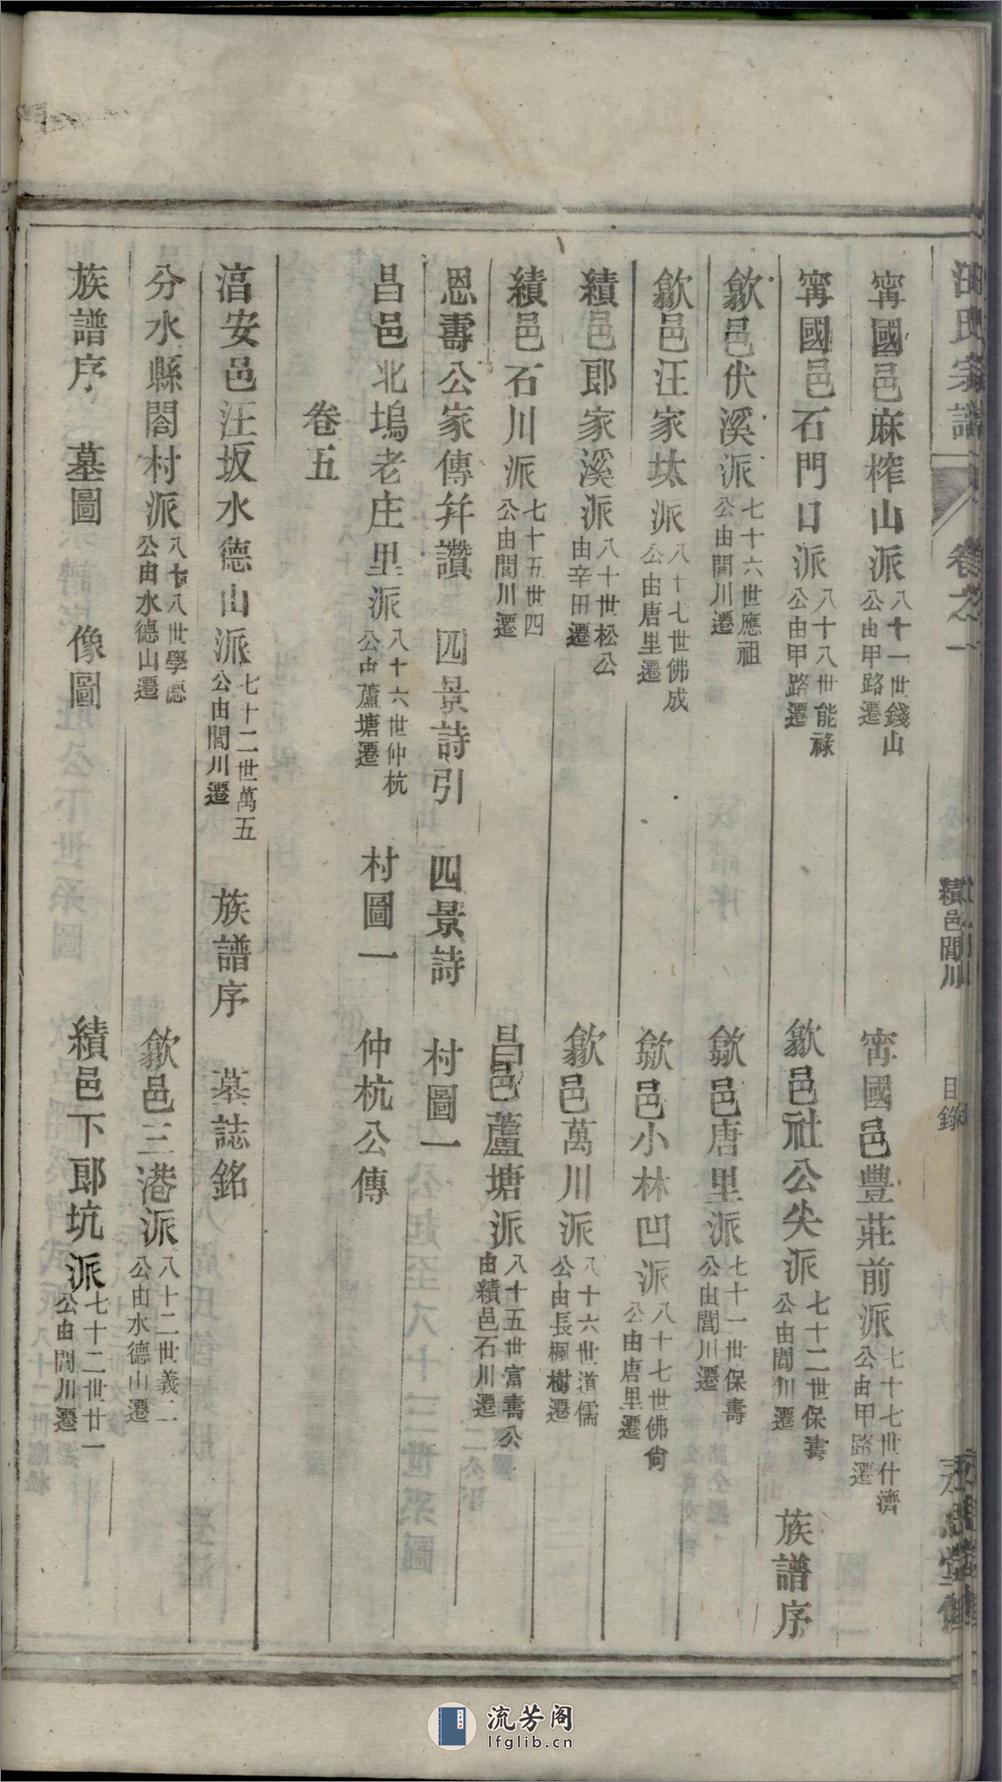 汪氏宗譜 卷之一 績邑閭川 目錄
寗國邑麻榨山派 八十一世錢山公由甲路遷 寗國邑豐莊前派 七十七世什濟公由甲路遷
寗國邑石門口派 八十八世能祿公由甲路遷 歙邑社公尖派 七十二世保壽公由閭川遷 族譜序
歙邑伏溪派 七十六世應祖公由閭川遷 歙邑唐里派 七十一世保壽公由閭川遷
歙邑汪家㘰派 八十七世佛成公由唐里遷 歙邑小林凹派 八十七世佛尙公由唐里遷
績邑郎家溪派 八十世松公由辛田遷 歙邑萬川派 八十六世道儒公由長楓樹遷
績邑石川派 七十五世四公由閭川遷 昌邑蘆塘派 八十五世富壽公由績邑石川遷
恩壽公家傳幷讚 四景詩引 四景詩 村圖一
昌邑北塢老庄里派 八十六世仲杭公由蘆塘遷 村圖一 仲杭公傳
卷五
湻安邑汪坂水德山派 七十二世萬五公由閭川遷 族譜序 墓誌銘
分水縣閤村派 八十八世學德公由水德山遷 歙邑三港派 八十二世義二公由水德山遷
族譜序 墓圖 像圖 績邑下郎坑派 七十二世廿一公由閭川遷
流芳阁
lfglib.cn